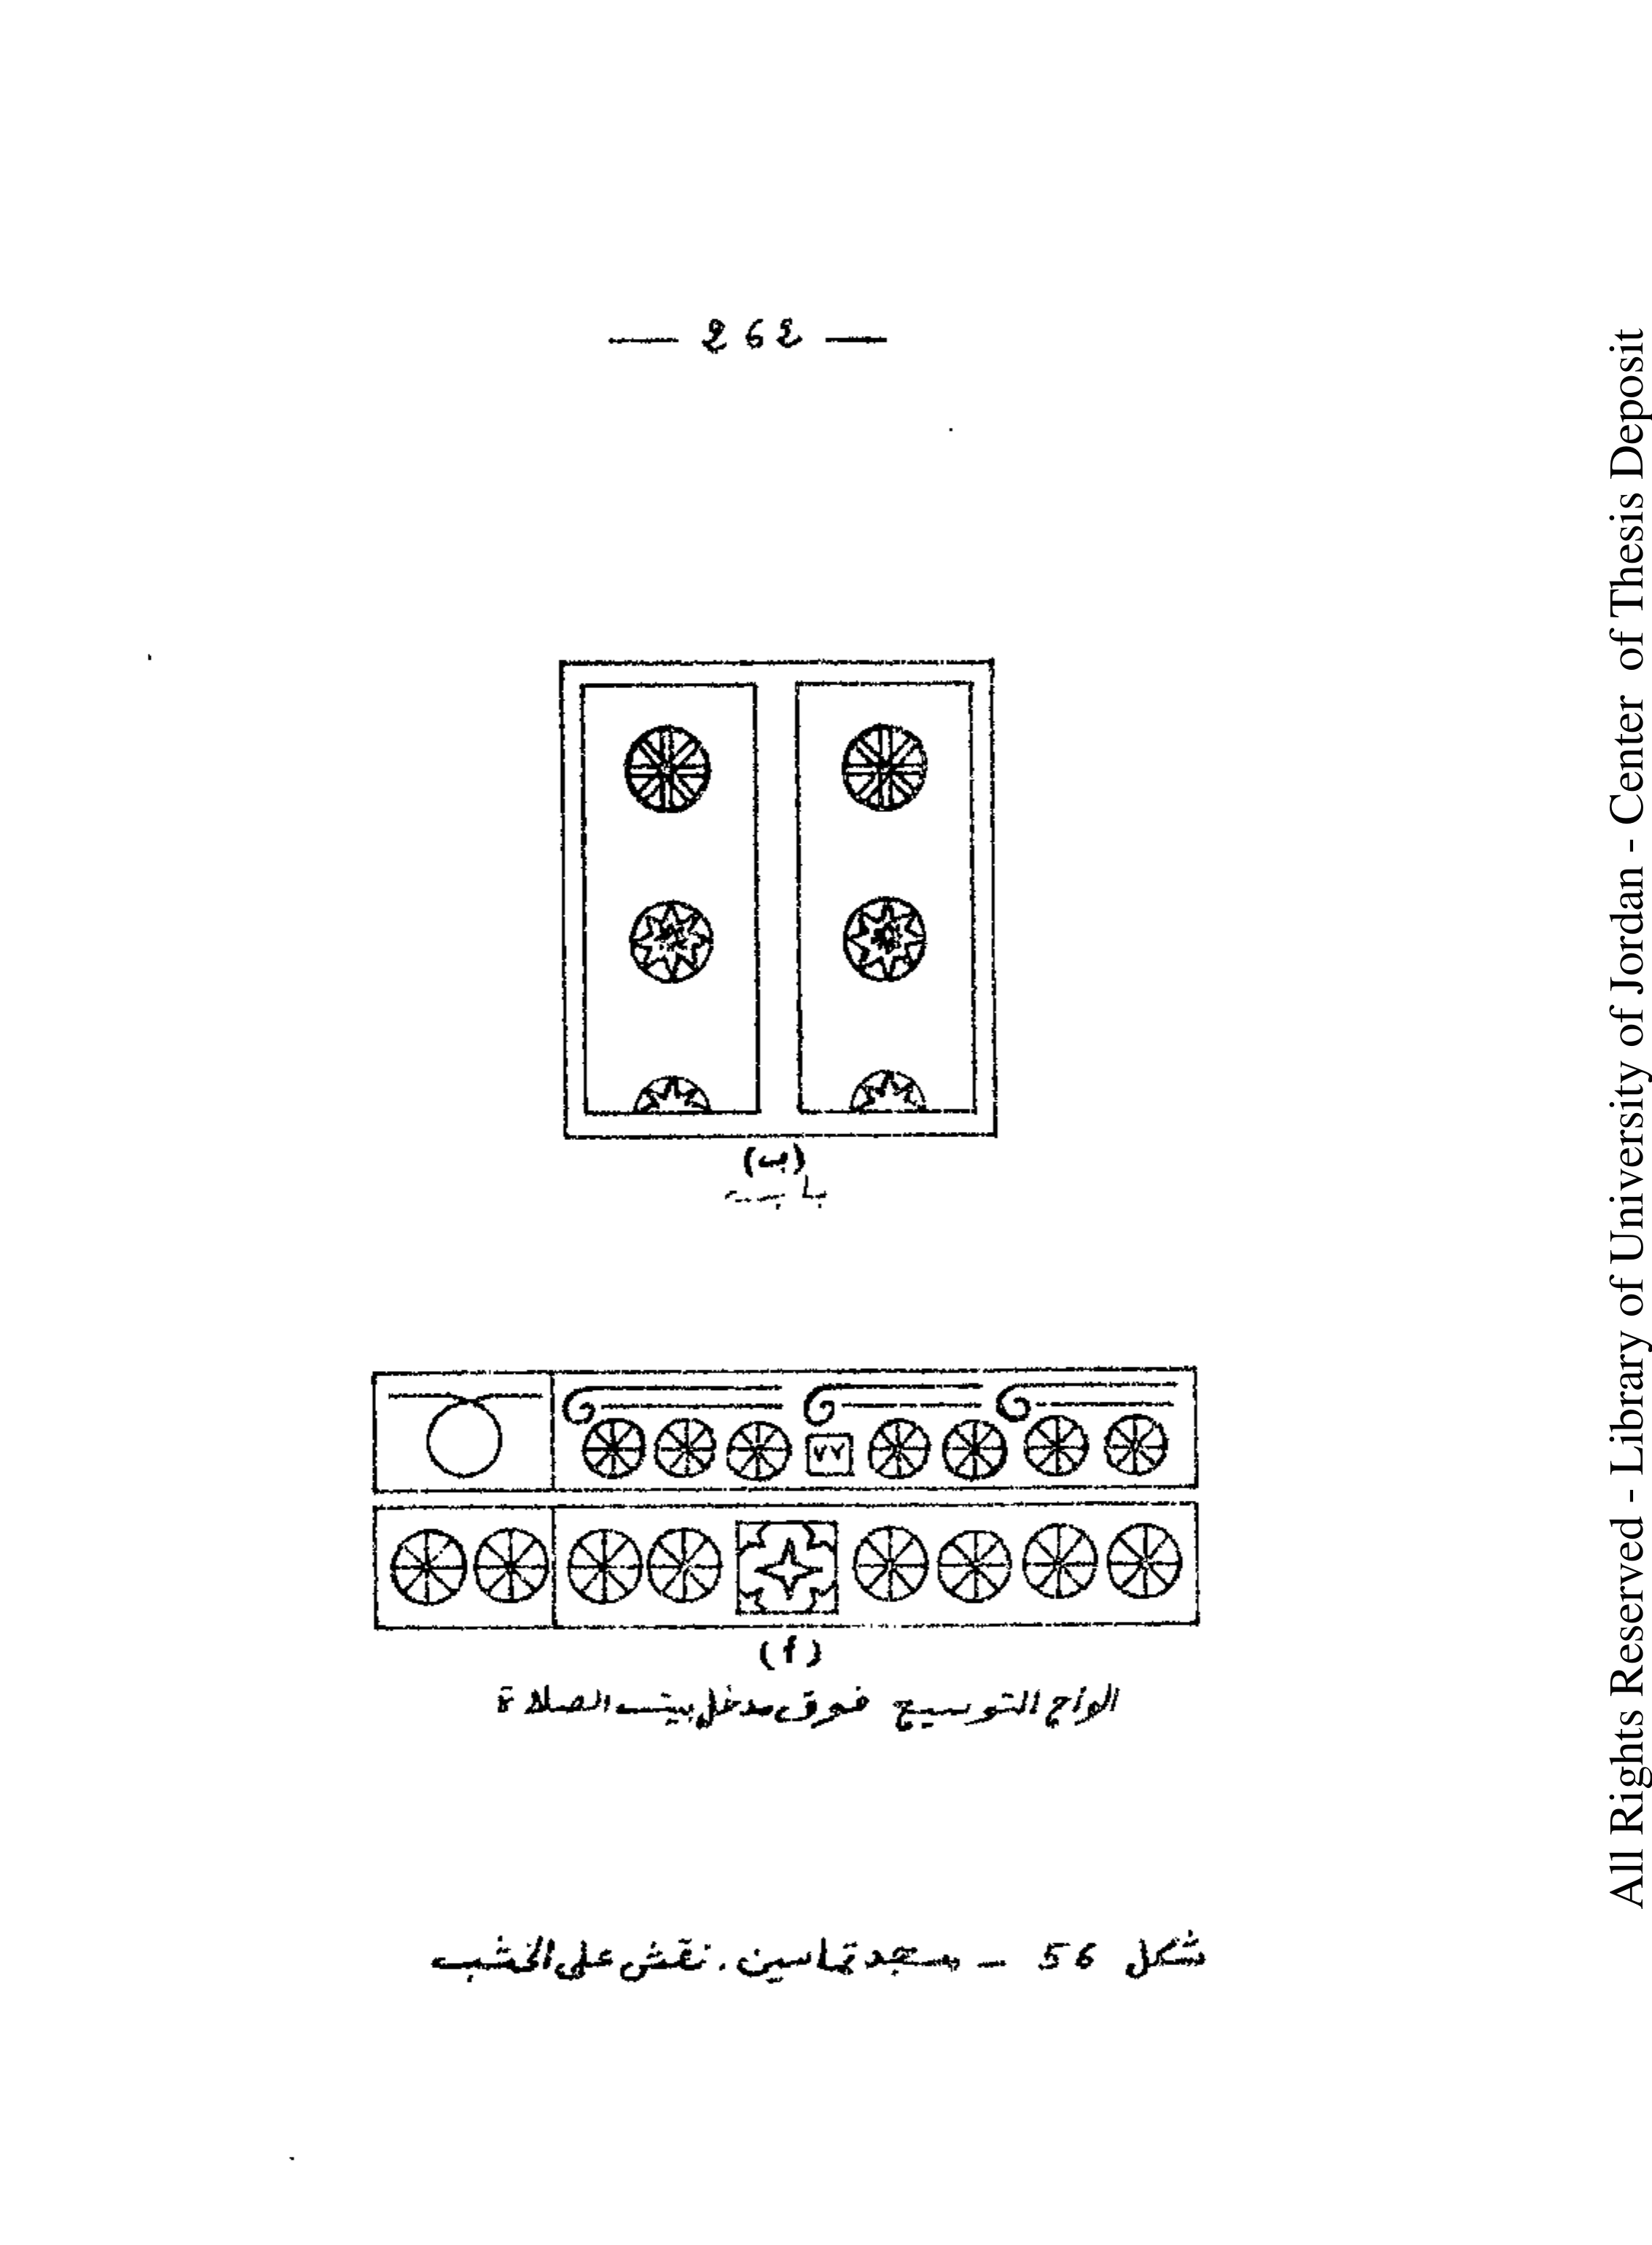 — 262 —
(ب)
باب
٧٧
(أ)
الواح التوسيع فوق مدخل بيت الصلاة
شكل 56 - مسجد تماسين. نقش على الخشب
All Rights Reserved - Library of University of Jordan - Center of Thesis Deposit